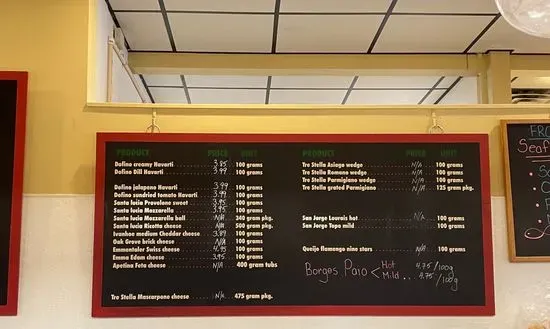 PRODUCT PRICE UNIT
Dofino creamy Havarti 3.85 100 grams
Dofino Dill Havarti 3.99 100 grams
Dofino jalapeno Havarti 3.99 100 grams
Dofino sundried tomato Havarti 3.99 100 grams
Santa lucia Provolone sweet 3.95 100 grams
Santa lucia Mozzarella 3.95 100 grams
Santa lucia Mozzarella ball N/A 500 gram pkg.
Santa lucia Ricotta cheese N/A 500 gram pkg.
Ivanhoe medium Cheddar 3.89 100 grams
Oak Grove brick cheese N/A 100 grams
Emmentaler Swiss cheese 4.95 100 grams
Emma Edam cheese 3.95 100 grams
Apetina Feta cheese N/A 400 gram tubs
Tre Stella Mascarpone cheese N/A 475 gram pkg.
PRODUCT PRICE UNIT
Tre Stella Asiago wedge N/A 100 grams
Tre Stella Romano wedge N/A 100 grams
Tre Stella Parmigiano wedge N/A 100 grams
Tre Stella grated Parmigiano N/A 125 gram pkg.
San Jorge Lourais hot N/A 100 grams
San Jorge Topo mild 100 grams
Queijo flamengo nine stars N/A 100 grams
Borges Paio < Hot 4.75/100g
Mild .. 4.75/100g
FRO
Seaf